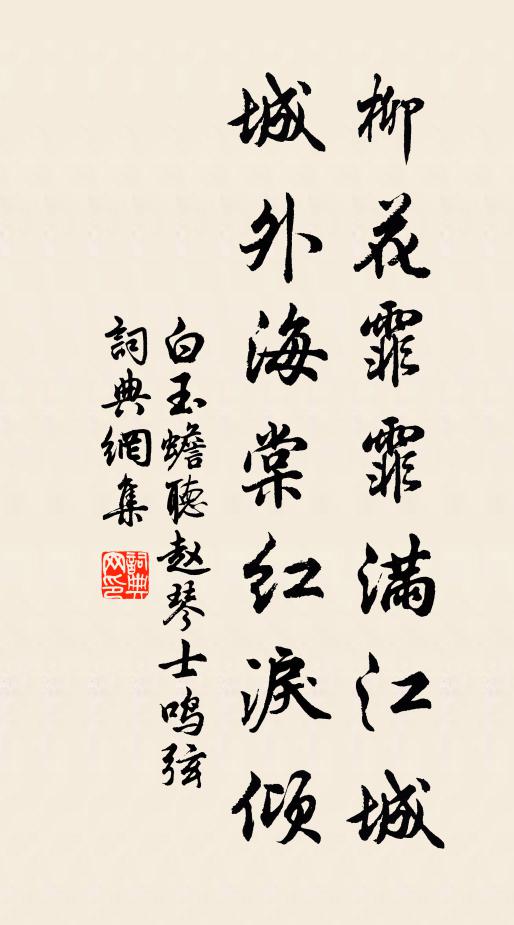 柳花霏霏满江城
城外海棠红淚倾
白玉蟾聽赵琴士鸣弦
詞典網集
詞典网印